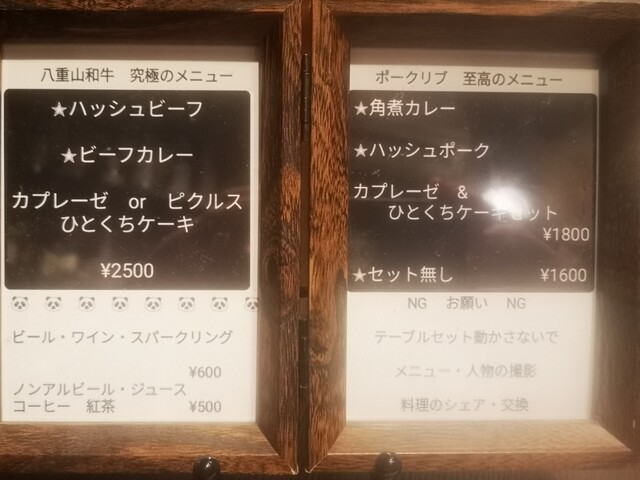 八重山和牛 究極のメニュー
★ハッシュビーフ
★ビーフカレー
カプレーゼ or ピクルス
ひとくちケーキ
¥2500
ビール・ワイン・スパークリング
¥600
ノンアルビール・ジュース
コーヒー 紅茶 ¥500
ポークリブ 至高のメニュー
★角煮カレー
★ハッシュポーク
カプレーゼ &
ひとくちケーキセット
¥1800
★セット無し ¥1600
NG お願い NG
テーブルセット動かさないで
メニュー・人物の撮影
料理のシェア・交換